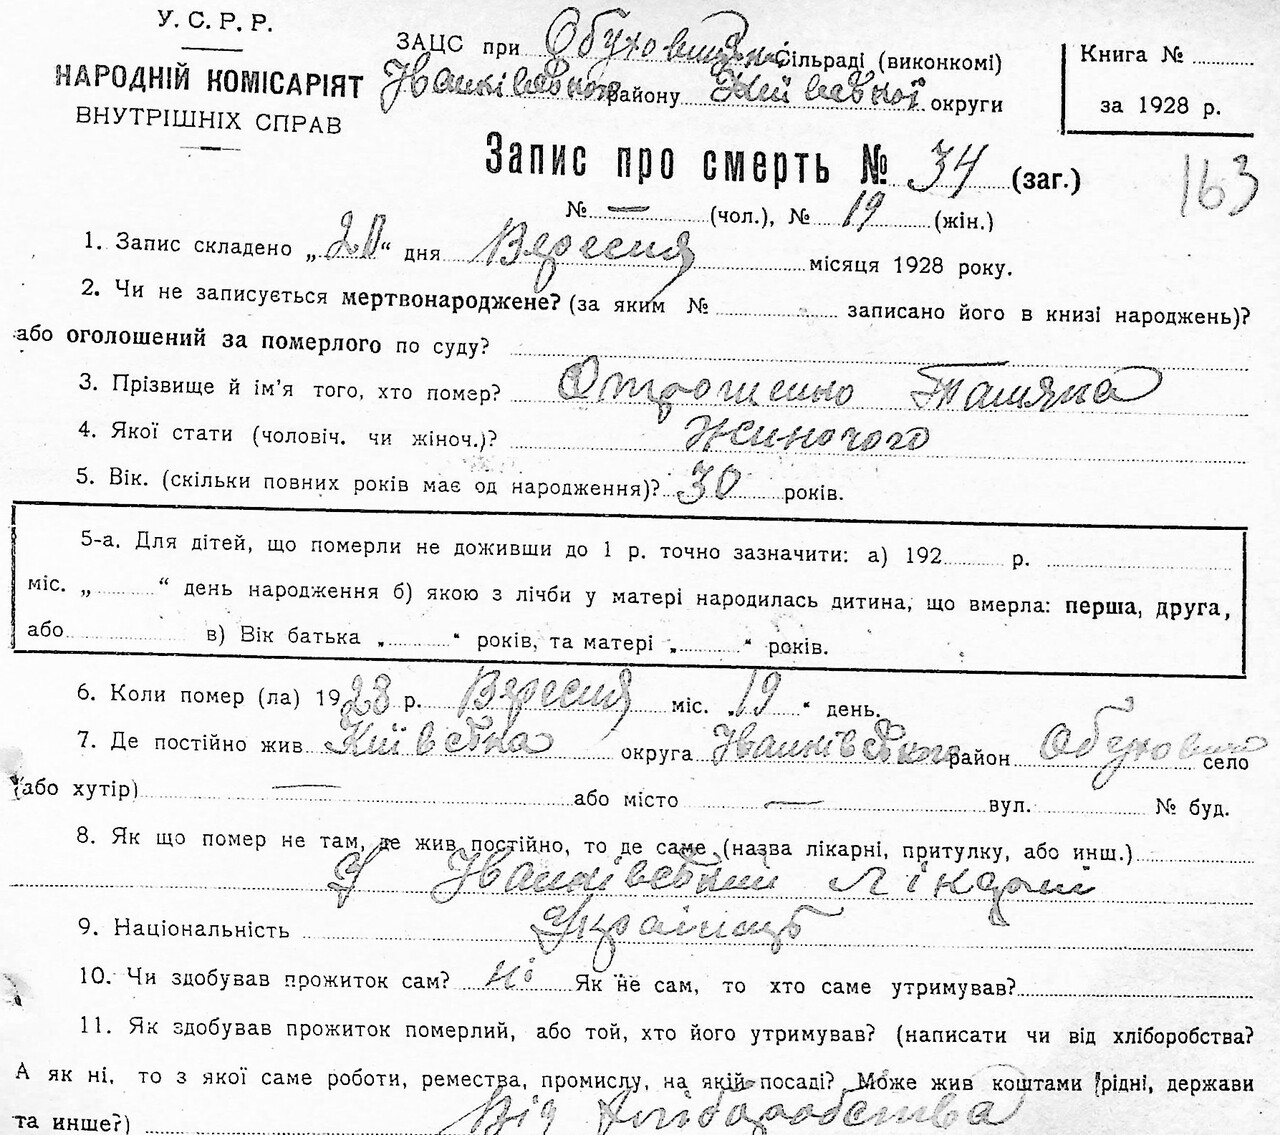 У. С. Р. Р.
НАРОДНІЙ КОМІСАРІЯТ
ВНУТРІШНІХ СПРАВ
ЗАЦС при Обуховицькій сільраді (виконкомі)
Іванківського району Київської округи
Книга №
за 1928 р.
Запис про смерть № 34 (заг.)
163
№ — (чол.), № 19 (жін.)
1. Запис складено „20“ дня Вересня місяця 1928 року.
2. Чи не записується мертвонароджене? (за яким № записано його в книзі народжень)?
або оголошений за померлого по суду?
3. Прізвище й ім'я того, хто помер?
4. Якої стати (чоловіч. чи жіноч.)? Жиночого
5. Вік. (скільки повних років має од народження)? 30 років.
5-а. Для дітей, що померли не доживши до 1 р. точно зазначити: а) 192 р.
міс. „ “ день народження б) якою з лічби у матері народилась дитина, що вмерла: перша, друга,
або в) Вік батька „ “ років, та матері „ “ років.
6. Коли помер (ла) 1928 р. Вересня міс. „19“ день.
7. Де постійно жив Київська округа Іванківського район Обуховичі село
(або хутір) — або місто — вул. № буд.
8. Як що помер не там, де жив постійно, то де саме (назва лікарні, притулку, або инш.)
У Іванківський лікарні
9. Національність Українць
10. Чи здобував прожиток сам? ні Як не сам, то хто саме утримував?
11. Як здобував прожиток померлий, або той, хто його утримував? (написати чи від хліборобства?
А як ні, то з якої саме роботи, ремества, промислу, на якій посаді? Може жив коштами рідні, держави
та инше?) Від хліборобства